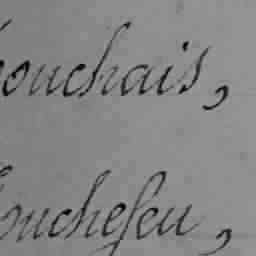 ouchais,
ouchefeu,